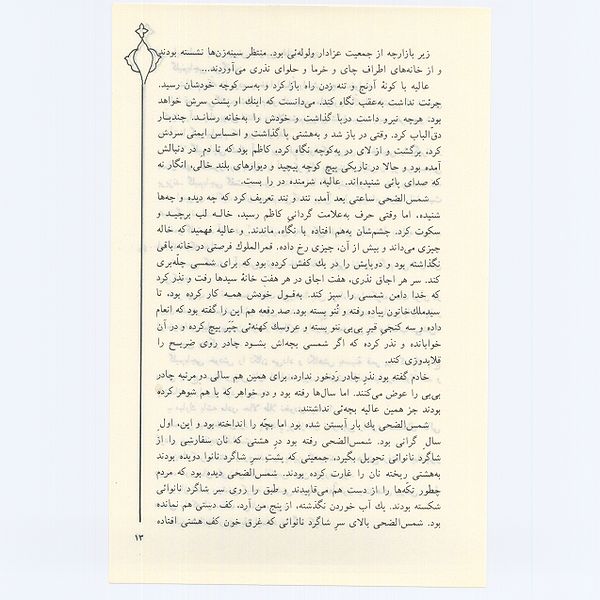 زیر بازارچه از جمعیت عزادار ولوله‌ئی بود. منتظر سینه‌زن‌ها نشسته بودند
و از خانه‌های اطراف چای و خرما و حلوای نذری می‌آوردند...
عالیه با کوبهٔ آرنج و تنه زدن راه باز کرد و به‌سر کوچه خودشان رسید.
جرئت نداشت به‌عقب نگاه کند. می‌دانست که اینك او پشت سرش خواهد
بود. هرچه نیرو داشت درپا گذاشت و خودش را به‌خانه رساند. چندبار
دق‌الباب کرد. وقتی در باز شد و به‌هشتی پا گذاشت و احساس ایمنی سردش
کرد، برگشت و از لای در به‌کوچه نگاه کرد، کاظم بود که تا دم در دنبالش
آمده بود و حالا در تاریکی پیچ کوچه پیچید و دیوارهای بلند خالی، انگار نه
که صدای پائی شنیده‌اند. عالیه، شرمنده در را بست.
شمس‌الضحی ساعتی بعد آمد، تند و تند تعریف کرد که چه دیده و چه‌ها
شنیده، اما وقتی حرف به‌علامت گردانی کاظم رسید، خاله لب برچید و
سکوت کرد. چشم‌شان به‌هم افتاده با نگاه، ماندند. و عالیه فهمید که خاله
چیزی می‌داند و بیش از آن، چیزی رخ داده. قمرالملوك فرصتی در خانه باقی
نگذاشته بود و دوپایش را در یك کفش کرده بود که برای شمسی چلّه‌بری
کند. سر هر اجاق نذری، هفت اجاق در هر هفت خانهٔ سیدها رفت و نذر کرد
که خدا دامن شمسی را سبز کند. به‌قول خودش همه کار کرده بود، تا
سیدملك‌خاتون پیاده رفته و نُنو بسته بود. صد دفعه هم این را گفته بود که انعام
داده و سه کنجی قبرِ بی‌بی ننو بسته و عروسك کهنه‌ئی چَپَر پیچ کرده و در آن
خوابانده و نذر کرده که اگر شمسی بچه‌اش بشود چادر روی ضریح را
قلابدوزی کند.
خادم گفته بود نذرِ چادر ردخور ندارد، برای همین هم سالی دو مرتبه چادر
بی‌بی را عوض می‌کنند. اما سال‌ها رفته بود و دو خواهر که با هم شوهر کرده
بودند جز همین عالیه بچه‌ئی نداشتند.
شمس‌الضحی یك بار آبستن شده بود اما بچّه را انداخته بود و این، اولِ
سالِ گرانی بود. شمس‌الضحی رفته بود درِ هشتی که نان سفارشی را از
شاگرد نانوائی تحویل بگیرد، جمعیتی که پشت سرِ شاگرد نانوا دویده بودند
به‌هشتی ریخته نان را غارت کرده بودند. شمس‌الضحی دیده بود که مردم
چطور تکّه‌ها را از دست هم می‌قاپیدند و طبق را روی سر شاگرد نانوائی
شکسته بودند. یك آب خوردن نگذشته، از پنج من آرد، کف دستی هم نمانده
بود. شمس‌الضحی بالای سرِ شاگرد نانوائی که غرق خون کف هشتی افتاده
۱۳